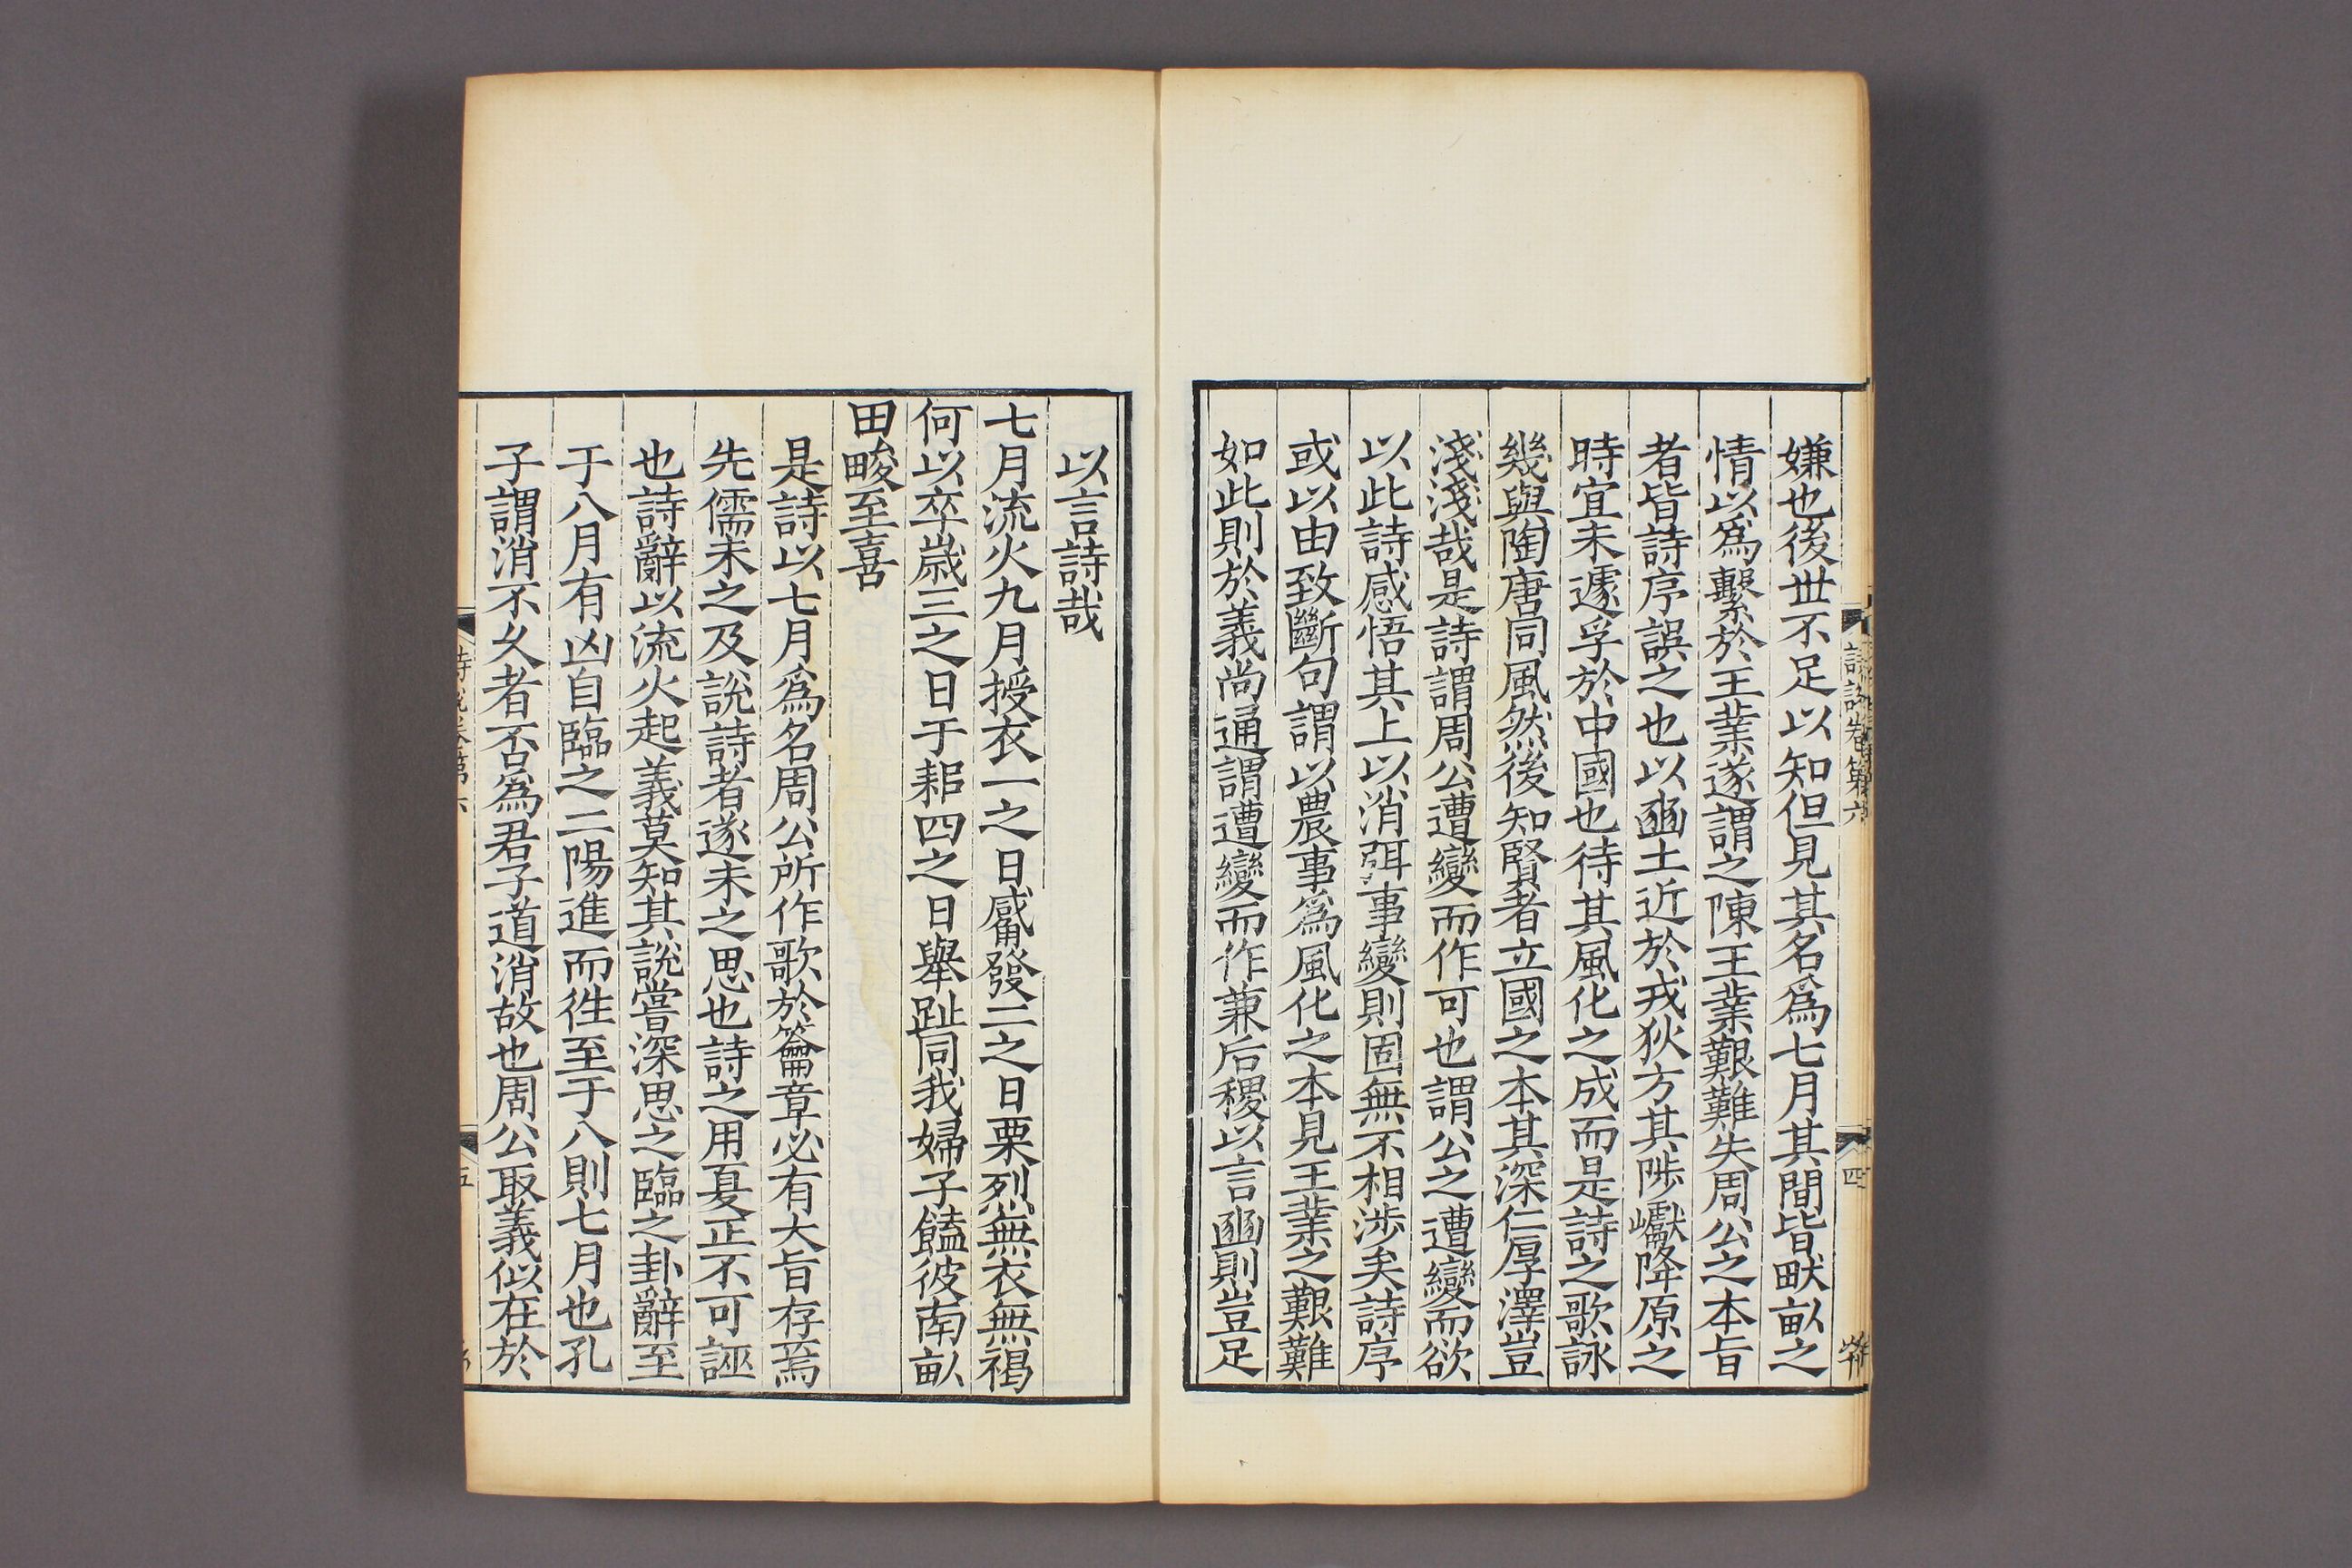 詩說卷第六
四
嫌也後世不足以知但見其名爲七月其間皆畎畝之
情以爲繫於王業遂謂之陳王業艱難失周公之本旨
者皆詩序誤之也以豳土近於戎狄方其陟巘降原之
時宜未遽孚於中國也待其風化之成而是詩之歌詠
幾與陶唐同風然後知賢者立國之本其深仁厚澤豈
淺淺哉是詩謂周公遭變而作可也謂公之遭變而欲
以此詩感悟其上以消弭事變則固無不相涉矣詩序
或以由致斷句謂以農事爲風化之本見王業之艱難
如此則於義尚通謂遭變而作兼后稷以言豳則豈足
以言詩哉
七月流火九月授衣一之日觱發二之日栗烈無衣無褐
何以卒歲三之日于耜四之日舉趾同我婦子饁彼南畝
田畯至喜
是詩以七月爲名周公所作歌於籥章必有大旨存焉
先儒未之及說詩者遂未之思也詩之用夏正不可誣
也詩辭以流火起義莫知其說嘗深思之臨之卦辭至
于八月有凶自臨之二陽進而徃至于八則七月也孔
子謂消不久者否爲君子道消故也周公取義似在於
詩說卷第六
五